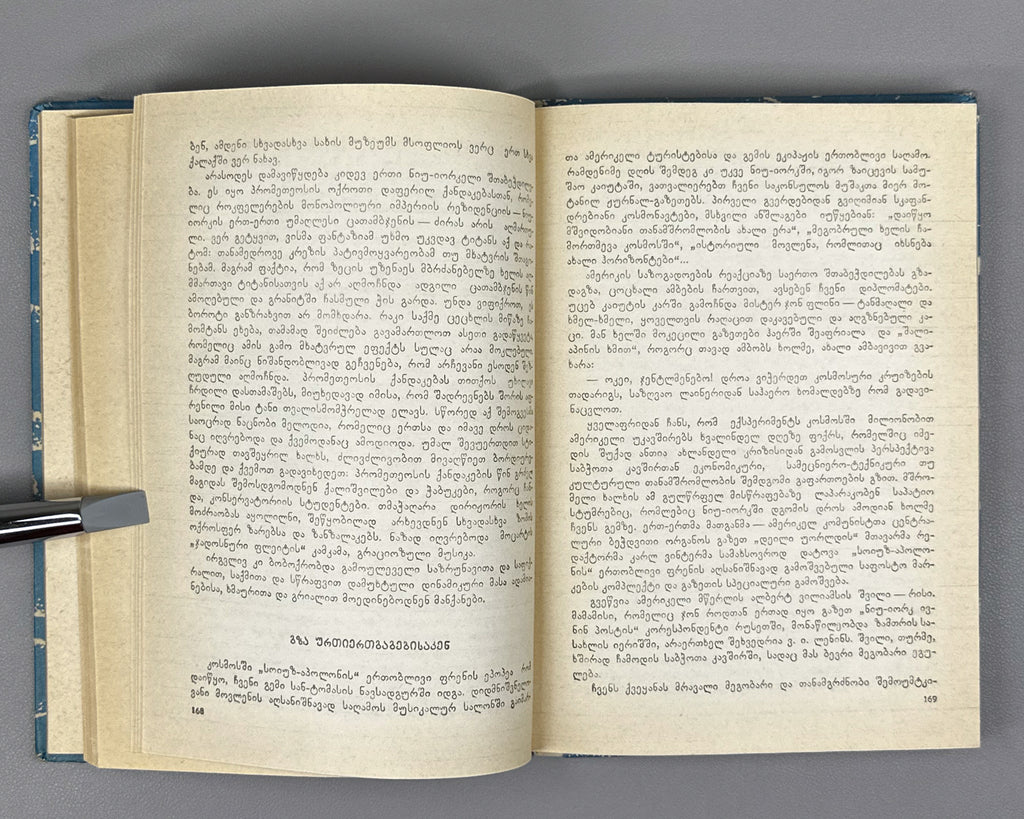 ბენ, ამდენი სხვადასხვა სახის მუზეუმს მსოფლიოს ვერც ერთ სხვა
ქალაქში ვერ ნახავ.
არასოდეს დამავიწყდება კიდევ ერთი ნიუ-იორკელი შთაბეჭდილე-
ბა. ეს იყო პრომეთეოსის ოქროთი დაფერილ ქანდაკებასთან, რომე-
ლიც როკფელერების მონოპოლიური იმპერიის რეზიდენციის — ნიუ-
იორკის ერთ-ერთი უმაღლესი ცათამბჯენის — ძირას არის აღმართუ-
ლი. ვერ გეტყვით, ვისმა ფანტაზიამ უხმო უკვდავ ტიტანს აქ და რა-
ტომ: თანამედროვე კრეზის პატივმოყვარეობამ თუ მხატვრის შთაგო-
ნებამ. მაგრამ ფაქტია, რომ ზეცის უზენაეს მბრძანებელზე ხელის აღ-
მმართავი ტიტანისათვის აქ არ აღმოჩნდა ადგილი ცათამბჯენის წინ
ამოღებული და გრანიტში ჩასმული ჭის გარდა. უნდა ვიფიქროთ, ეს
ბოროტი განზრახვით არ მომხდარა. რაკი საქმე ცეცხლის მიწაზე ჩა-
მომტანს ეხება, თამამად შეიძლება გავამართლოთ ასეთი გადაწყვეტა,
რომელიც ამის გამო მხატვრულ ეფექტს სულაც არაა მოკლებული,
მაგრამ მაინც ნიშანდობლივად გეჩვენება, რომ არჩევანი ესოდენ შეზ-
ღუდული აღმოჩნდა. პრომეთეოსის ქანდაკებას თითქოს
ჩრდილი დასთამაშებს, მიუხედავად იმისა, რომ შადრევნებს შორის აღ-
რენილი მისი ტანი თვალისმომჭრელად ელავს. სწორედ აქ შემოგვესმა
საოცრად ნაცნობი მელოდია, რომელიც ერთსა და იმავე დროს ციდა-
ნაც იღვრებოდა და ქვემოდანაც ამოდიოდა. უმალ შევუერთდით სტი-
ქიურად თავშეყრილ ხალხს, ძლივძლივობით მივაღწიეთ ბორდიურ-
ბამდე და ქვემოთ გადავიხედეთ: პრომეთეოსის ქანდაკების წინ გრძელ
მაგიდას შემოსდგომოდნენ ქალიშვილები და ჭაბუკები, როგორც ჩან-
და, კონსერვატორიის სტუდენტები. თმაჭაღარა დირიჟორის ხელის
მოძრაობას აყოლილნი, შეწყობილად არხევდნენ სხვადასხვა ზომის
ოქროსფერ ზარებსა და ზანზალაკებს. ნაზად იღვრებოდა მოცარტის
„ჯადოსნური ფლეიტის“ კამკამა, გრაციოზული მუსიკა.
ირგვლივ კი ბობოქრობდა გამოულეველი საზრუნავითა და საფიქ-
რალით, საქმითა და სწრაფვით დამუხტული დინამიკური მასა ადამია-
ნებისა, ხმაურითა და გრიალით მოედინებოდნენ მანქანები.
გზა ურთიერთგაგებისაკენ
კოსმოსში „სოიუზ-აპოლონის“ ერთობლივი ფრენის ეპოპეა რომ
დაიწყო, ჩვენი გემი სან-ტომასის ნავსადგურში იდგა. დიდმნიშვნელო-
ვანი მოვლენის აღსანიშნავად საღამოს მუსიკალურ სალონში გაიმარ-
168
თა ამერიკელი ტურისტებისა და გემის ეკიპაჟის ერთობლივი საღამო.
რამდენიმე დღის შემდეგ კი უკვე ნიუ-იორკში, იგორ ზაიცევის სამუ-
შაო კაიუტაში, ვათვალიერებთ ჩვენი საკონსულოს მუშაკთა მიერ მო-
ტანილ ჟურნალ-გაზეთებს. პირველი გვერდებიდან გვიღიმიან სკაფან-
დრებიანი კოსმონავტები, მსხვილი ანშლაგები იუწყებიან: „დაიწყო
მშვიდობიანი თანამშრომლობის ახალი ერა“, „მეგობრული ხელის ჩა-
მორთმევა კოსმოსში“, „ისტორიული მოვლენა, რომლითაც იხსნება
ახალი ჰორიზონტები“...
ამერიკის საზოგადოების რეაქციაზე საერთო შთაბეჭდილებას გზა-
დაგზა, ცოცხალი ამბების ჩართვით, ავსებენ ჩვენი დიპლომატები.
უცებ კაიუტის კარში გამოჩნდა მისტერ ჯონ ფლინი — ტანმაღალი და
ხმელ-ხმელი, ყოველთვის რაღაცით დაკავებული და აღგზნებული კა-
ცი. მან ხელში მოკეცილი გაზეთები ჰაერში შეაფრიალა და „შალი-
აპინის ხმით“, როგორც თავად ამბობს ხოლმე, ახალი ამბავივით გვა-
ხარა:
— ოკეი, ჯენტლმენებო! დროა ვიჭერდეთ კოსმოსური კრუიზების
თადარიგს, საზღვაო ლაინერიდან საჰაერო ხომალდებზე რომ გადავი-
ნაცვლოთ.
ყველაფრიდან ჩანს, რომ ექსპერიმენტს კოსმოსში მილიონობით
ამერიკელი უკავშირებს ხვალინდელ დღეზე ფიქრს, რომელშიც იმე-
დის შუქად ანთია ახლანდელი კრიზისიდან გამოსვლის პერსპექტივა
საბჭოთა კავშირთან ეკონომიკური, სამეცნიერო-ტექნიკური თუ
კულტურული თანამშრომლობის შემდგომი გაფართოების გზით. მშრო-
მელი ხალხის ამ გულწრფელ მისწრაფებაზე ლაპარაკობენ საპატიო
სტუმრებიც, რომლებიც ნიუ-იორკში დგომის დროს ამოდიან ხოლმე
ჩვენს გემზე. ერთ-ერთმა მათგანმა — ამერიკელ კომუნისტთა ცენტრა-
ლური ბეჭდვითი ორგანოს გაზეთ „დეილი უორლდის“ მთავარმა რე-
დაქტორმა კარლ ვინტერმა სამახსოვროდ დატოვა „სოიუზ-აპოლო-
ნის“ ერთობლივი ფრენის აღსანიშნავად გამოშვებული საფოსტო მარ-
კების კომპლექტი და გაზეთის სპეციალური გამოშვება.
გვეწვია ამერიკელი მწერლის ალბერტ ვილიამსის შვილი — რისი.
მამამისი, რომელიც ჯონ როდთან ერთად იყო გაზეთ „ნიუ-იორკ ივ-
ნინ პოსტის“ კორესპონდენტი რუსეთში, მონაწილეობდა ზამთრის სა-
სახლის იერიშში, არაერთხელ შეხვედრია ვ. ი. ლენინს. შვილი, თურმე,
ხშირად ჩამოდის საბჭოთა კავშირში, სადაც მას ბევრი მეგობარი ეგუ-
ლება.
ჩვენს ქვეყანას მრავალი მეგობარი და თანამგრძნობი შემოუმტკი-
169